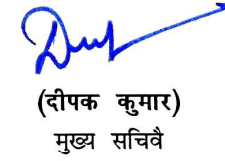 (दीपक कुमार)
मुख्य सचिवै